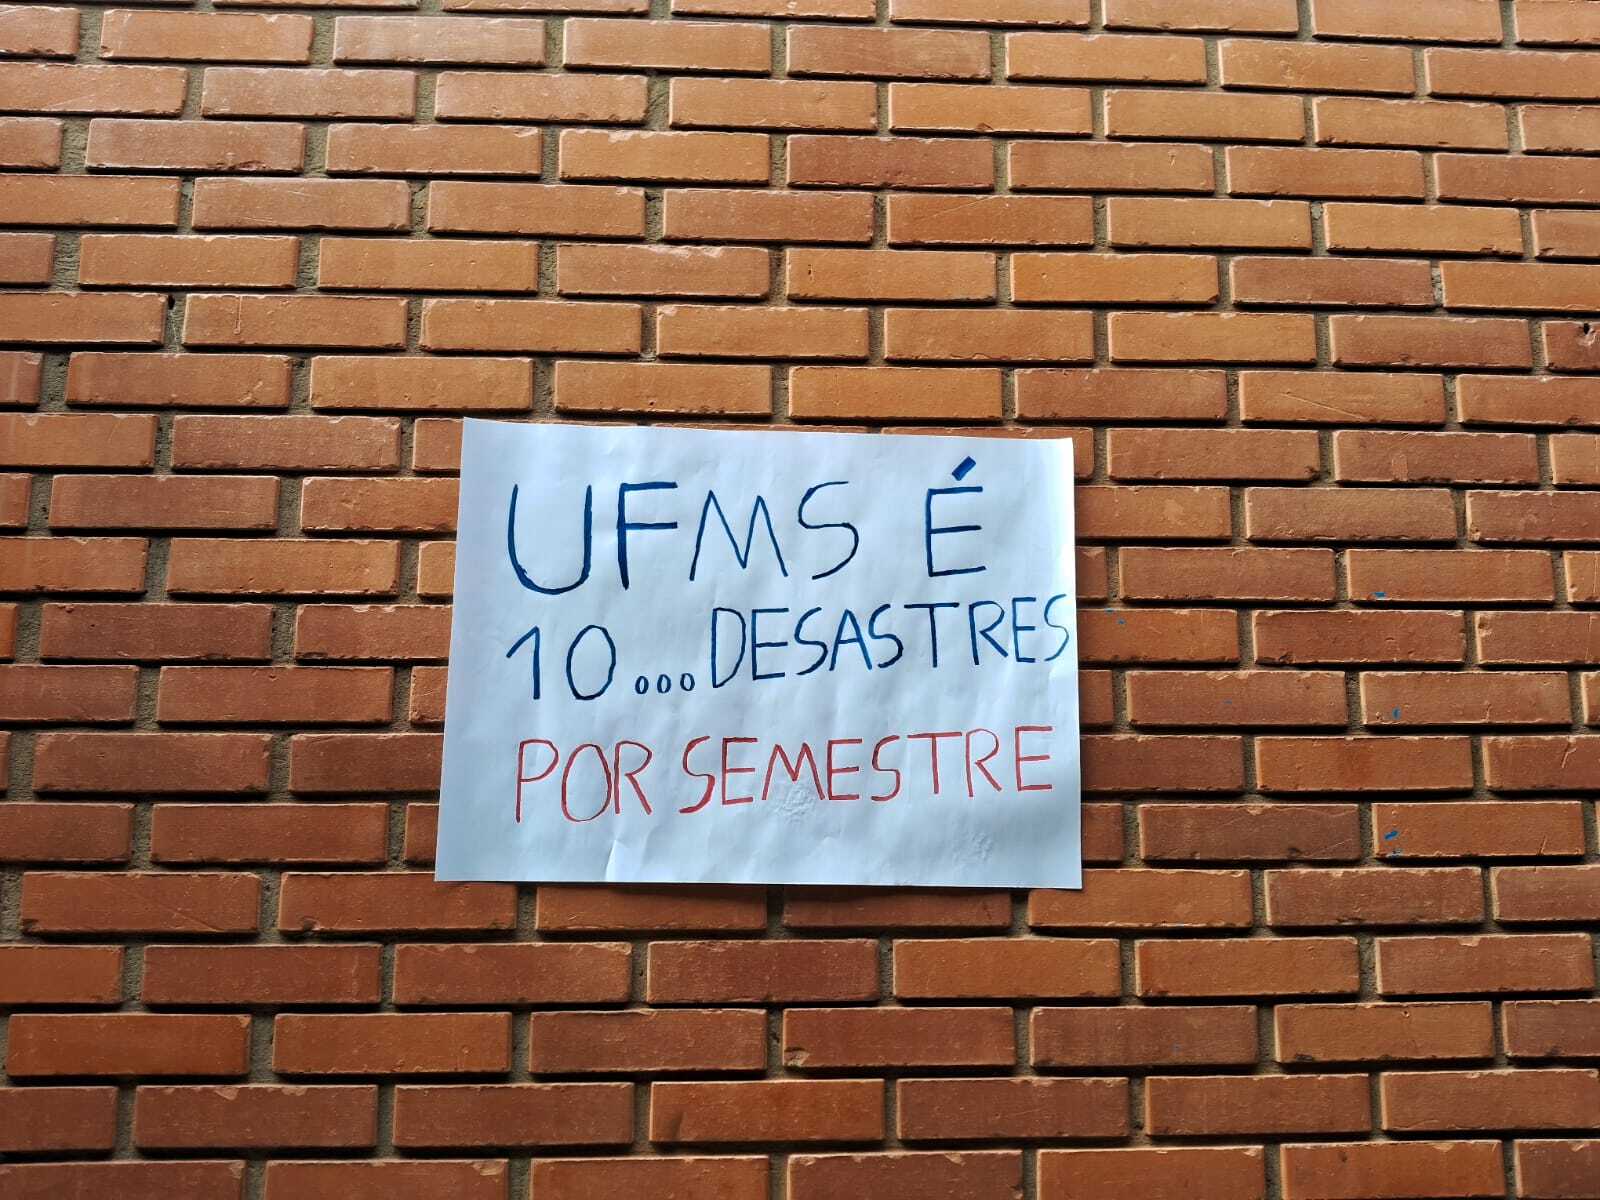 UFMS É
10...DESASTRES
POR SEMESTRE